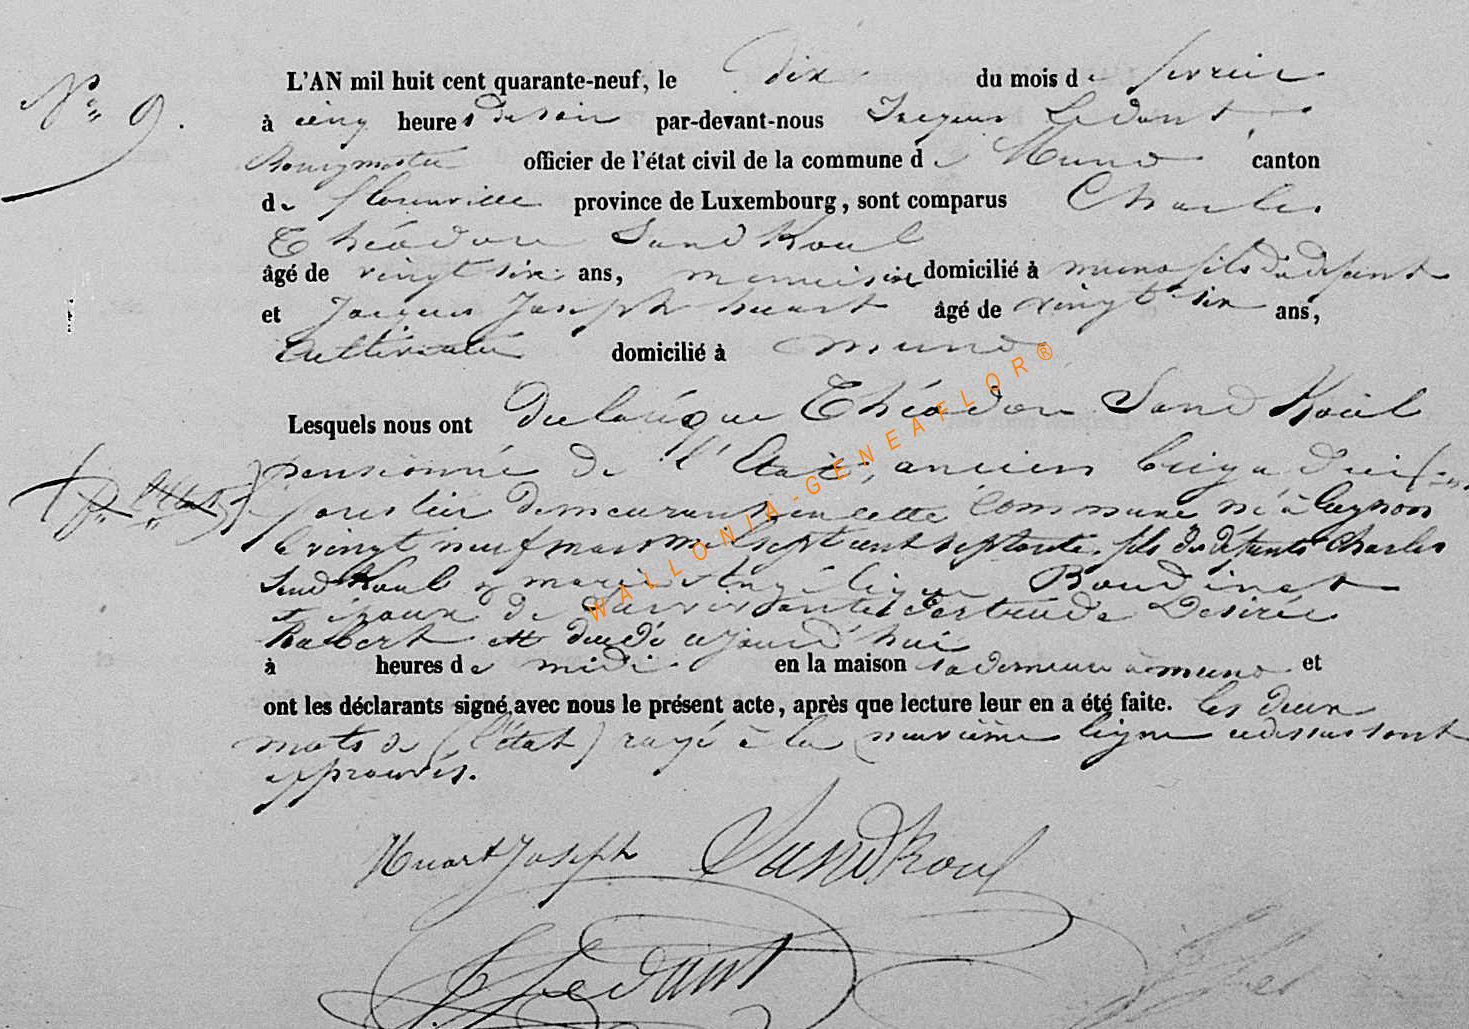 N° 9.
L'AN mil huit cent quarante-neuf, le dix du mois de fevrier
à cinq heures du soir par-devant-nous Jacques Ledant
Bourgmestre officier de l'état civil de la commune de Muno canton
de florenville province de Luxembourg, sont comparus Charles
Théodore Sandkoul
âgé de vingt six ans, menuisier domicilié à muno fils du defunt
et Jacques Joseph huart âgé de vingt six ans,
Cultivateur domicilié à muno
Lesquels nous ont declaré que Théodore Sandkoul
pensionné de l'Etat, ancien brigadier
forestier demeurant en cette commune né à
le vingt neuf mars mil sept cent septante, fils des défunts Charles
Sandkoul & marie Angélique Boudinet
epoux de survivante Gertrude Desirée
Robert est decédé aujourd'hui
à heures de midi en la maison sa demeure à muno et
ont les déclarants signé avec nous le présent acte, après que lecture leur en a été faite. les deux
mots de (l'état) rayé à la neuvième ligne cidessus sont
approuvés.
Huart Joseph Sandkoul
Ledant
WALLONIA-GENEAFLOR®